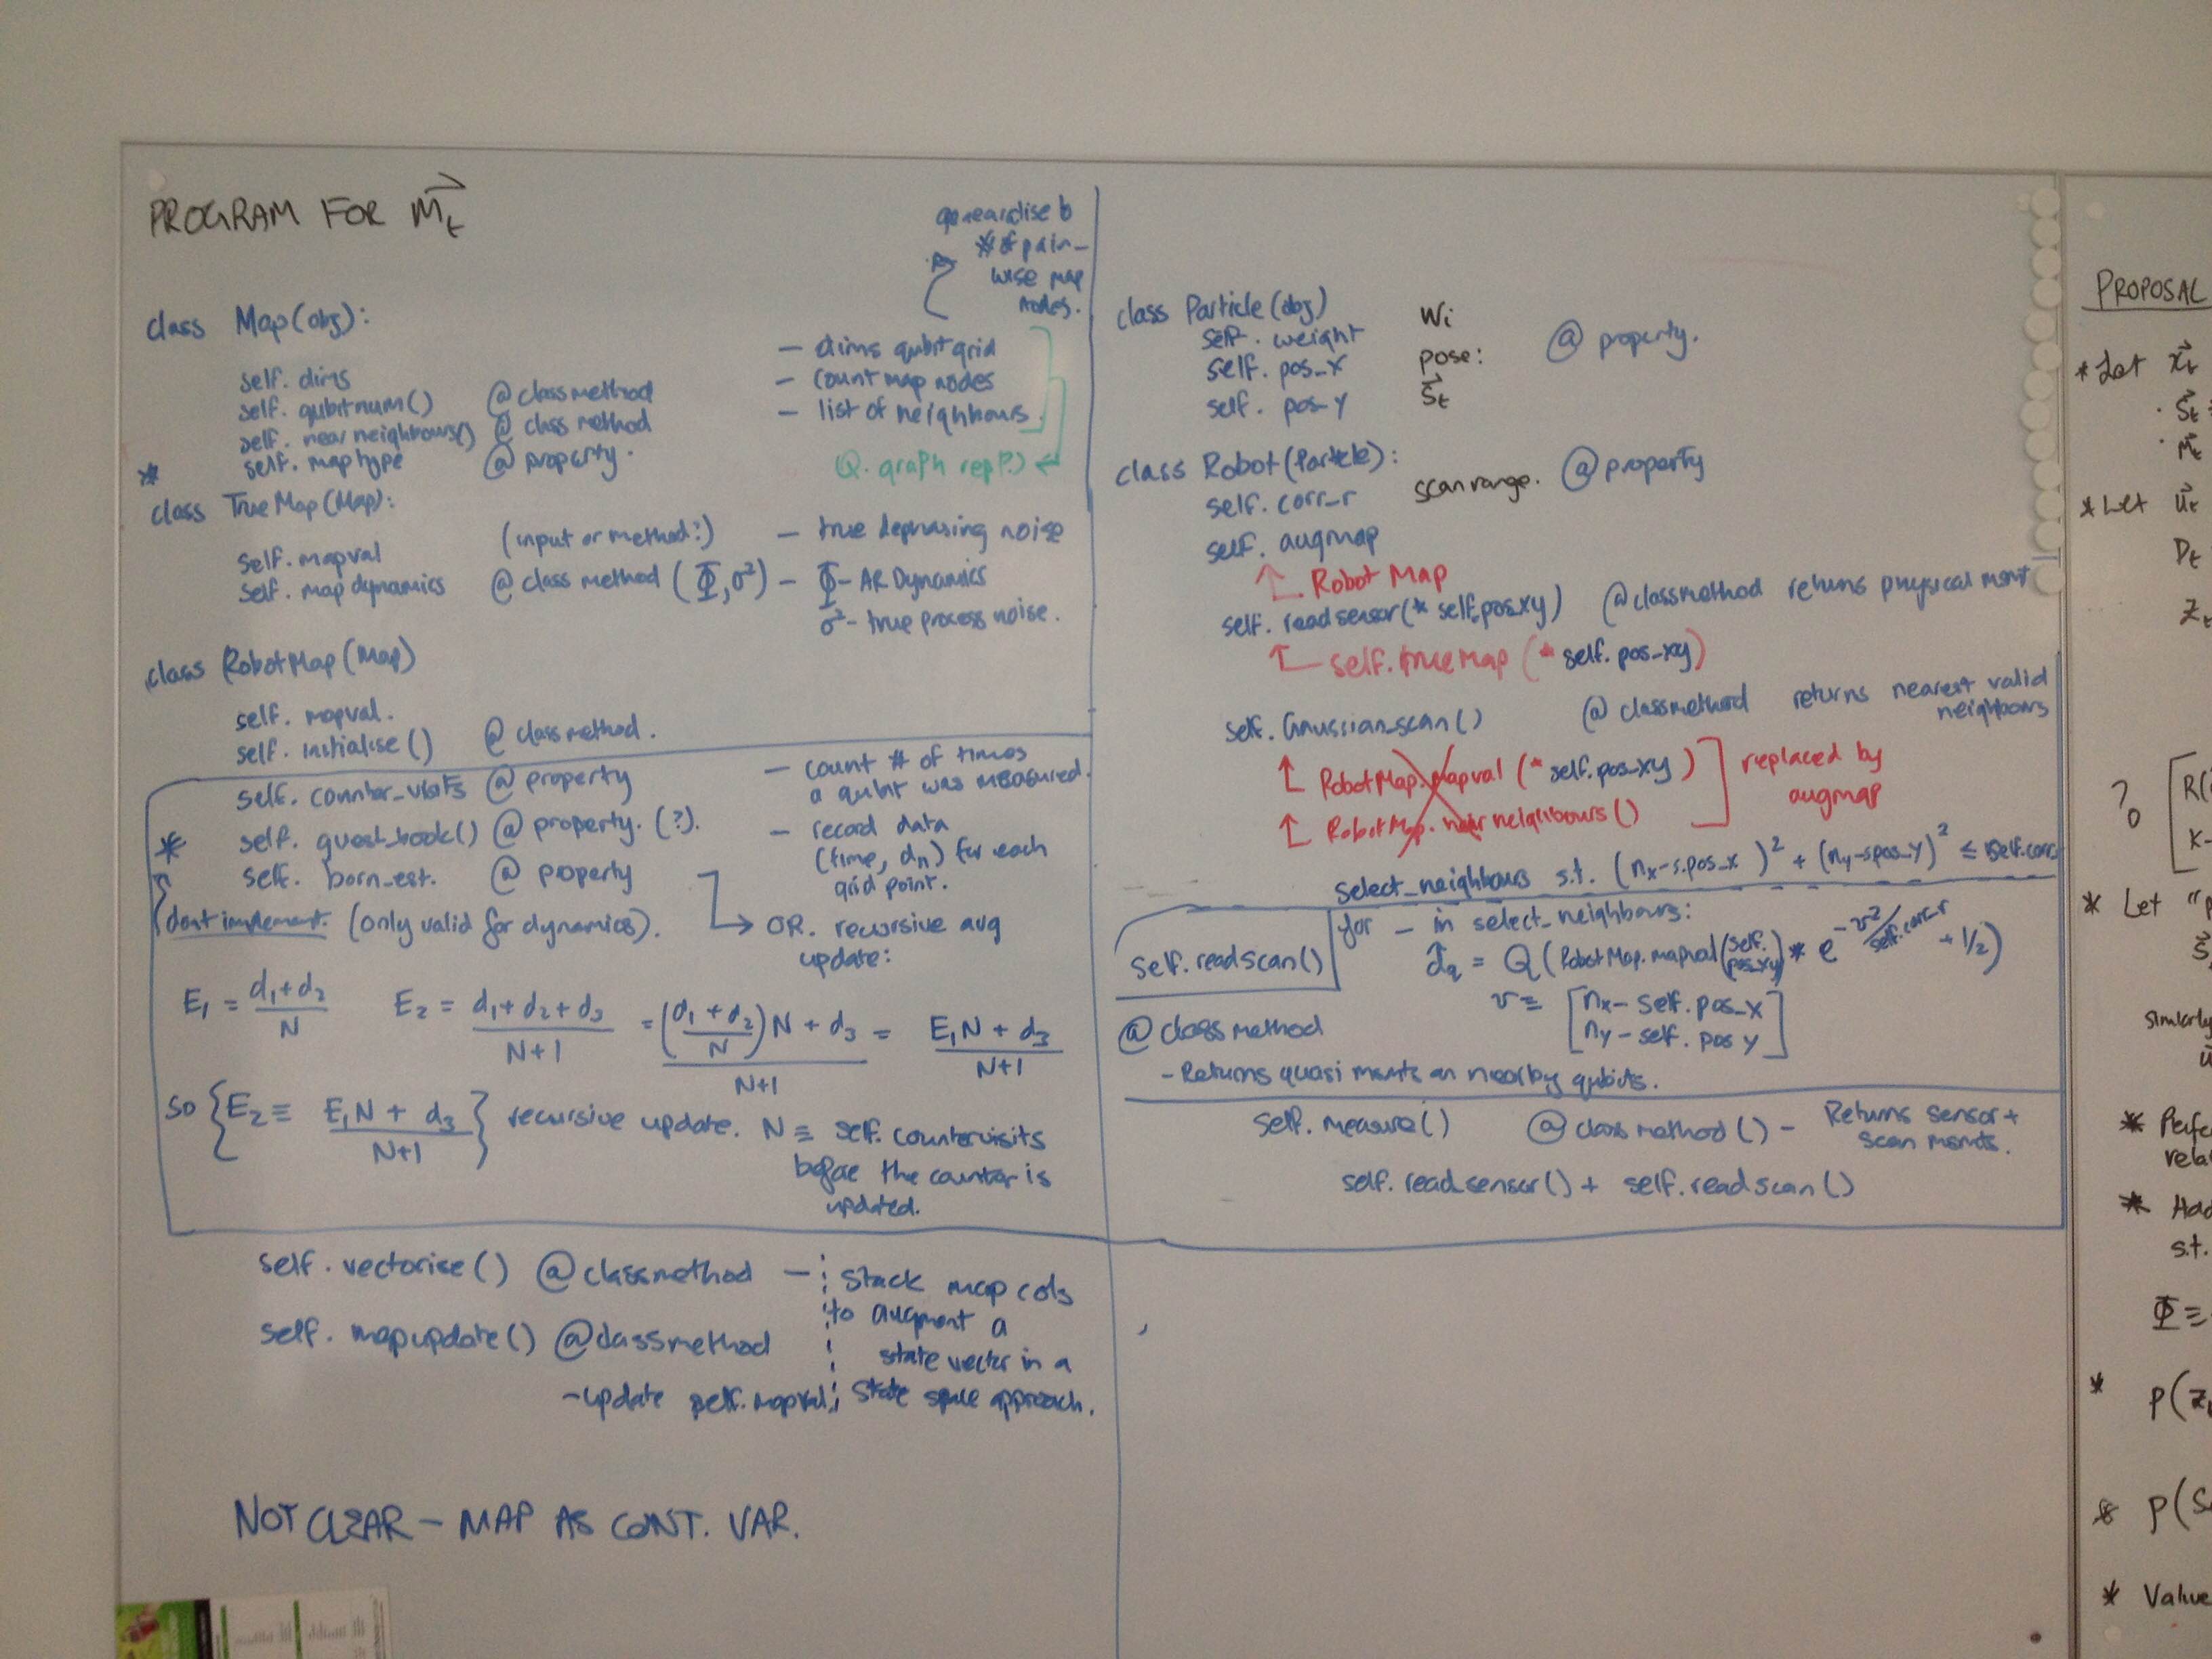 PROGRAM FOR M⃗t
generalise b
# of pair-
wise map
nodes.
class Map(obj):
self. dims — dims qubit grid
self. qubitnum() @classmethod — count map nodes
self. near neighbours() @ class method — list of neighbours.
* self. maptype @ property.
Q. graph rep?)
class TrueMap(Map):
self. mapval (input or method?) — true dephasing noise
self. map dynamics @ class method (Φ, σ²) — Φ - AR Dynamics
σ² - true process noise.
class RobotMap(Map)
self. mapval.
self. initialise() @ classmethod.
self. counter_visits @ property — count # of times
a qubit was measured.
* self. guest_book() @ property. (?). — record data
(time, dn) for each
grid point.
self. born_est. @ property
dont implement. (only valid for dynamics).
OR. recursive avg
update:
E₁ = (d₁+d₂)/N E₂ = (d₁+d₂+d₃)/(N+1) = (((d₁+d₂)/N)N + d₃)/(N+1) = (E₁N + d₃)/(N+1)
so {E₂ ≡ (E₁N + d₃)/(N+1)} recursive update. N ≡ self. countervisits
before the counter is
updated.
self. vectorise() @classmethod — stack map cols
to augment a
state vector in a
state space approach.
self. mapupdate() @classmethod
- update self. mapval
NOT CLEAR — MAP AS CONT. VAR.
class Particle(obj)
self. weight Wi
self. pos_x pose: @ property.
self. pos_y S⃗t
class Robot(Particle):
self. corr_r scan range. @property
self. augmap
Robot Map
self. readsensor(* self.pos_xy) @classmethod returns physical msmt
self. trueMap (* self. pos_xy)
self. Gaussian_scan() @ classmethod returns nearest valid
neighbours
RobotMap. mapval (* self. pos_xy)
RobotMap. near neighbours()
replaced by
augmap
select_neighbours s.t. (nx - s.pos_x)² + (ny - s.pos_y)² ≤ self.corr
self. readscan()
for _ in select_neighbours:
d̂q = Q (RobotMap. mapval(self. pos_xy) * e^(-v²/self.corr_r) + 1/2)
v ≡ [nx - self. pos_x
ny - self. pos y]
@ classmethod
- Returns quasi msmts on nearby qubits.
self. measure() @ classmethod() - Returns sensor +
scan msmts.
self. read_sensor() + self. readscan()
PROPOSAL
* Let x⃗t
· S⃗t
· M⃗t
* Let u⃗t
Dt
Zt
?
R(
K-
* Let "p
similarly
* Perfe
rela
* Add
s.t.
Φ ≡
* p(z
* p(S
* Value